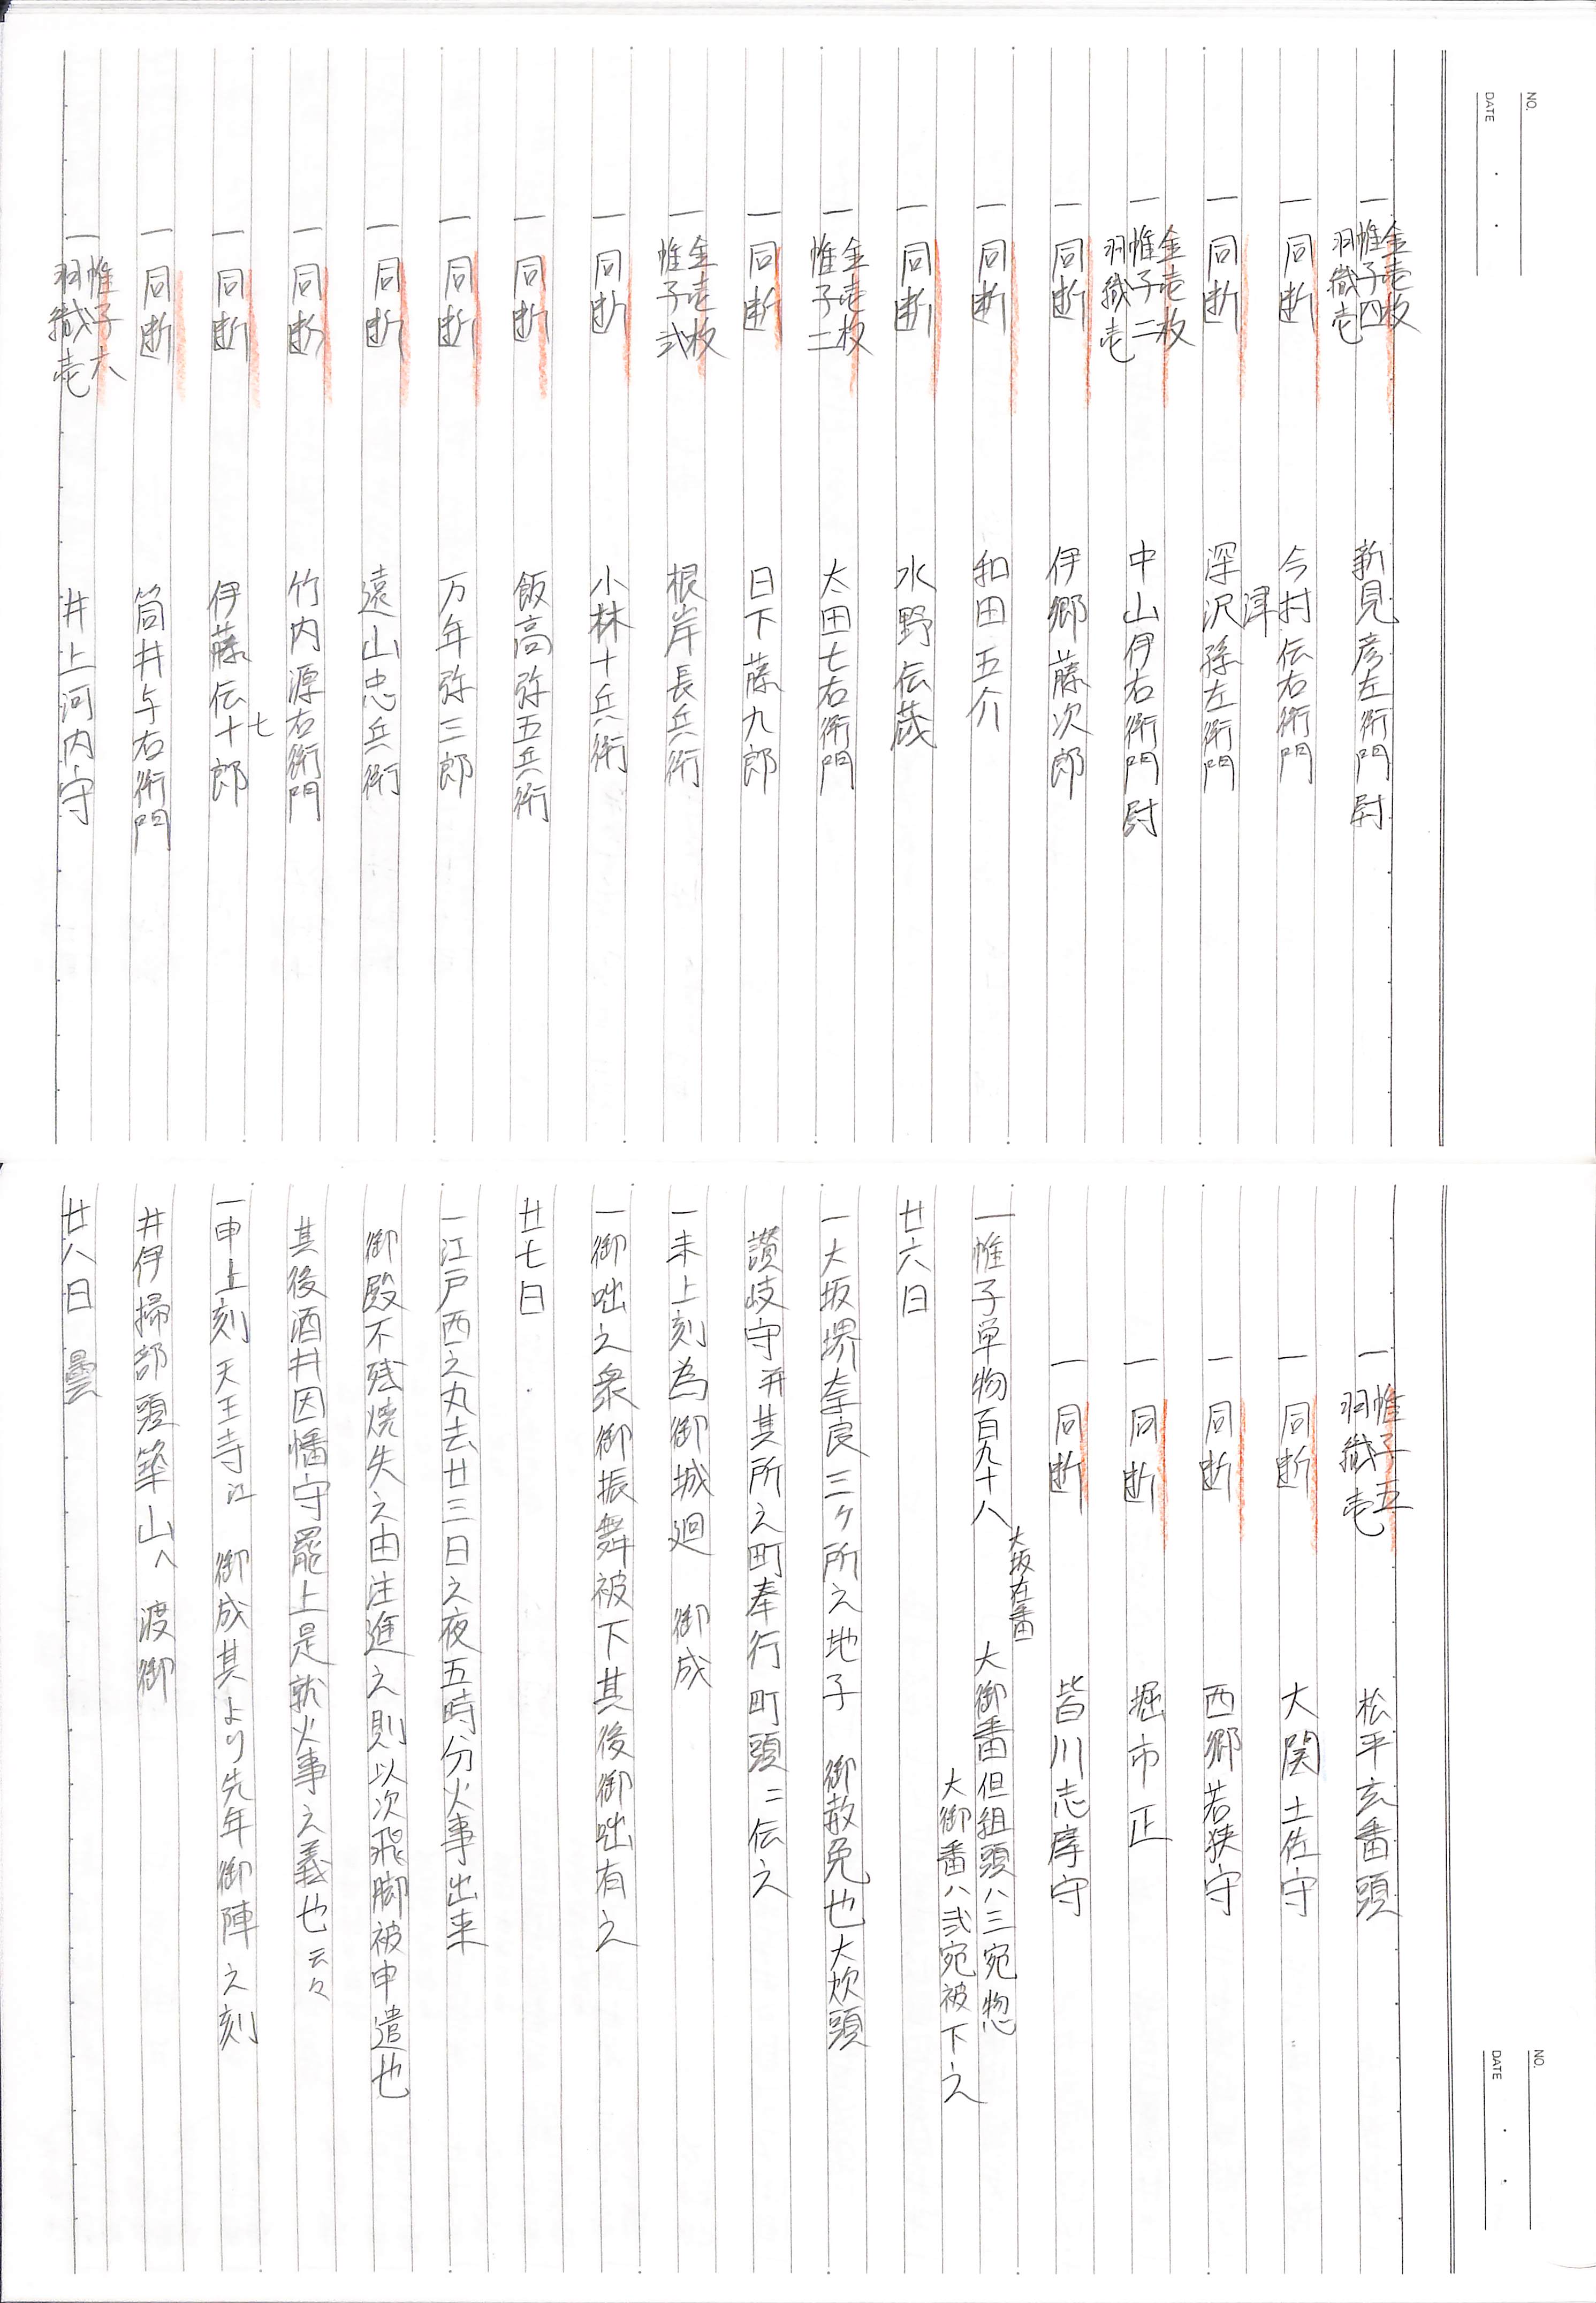 NO.
DATE
一 金壱枚 帷子四 羽織壱 新見彦左衛門尉
一 同断 今村伝右衛門
津
一 同断 深沢孫左衛門
一 金壱枚 帷子二 羽織壱 中山伊右衛門尉
一 同断 伊郷藤次郎
一 同断 和田五介
一 同断 水野伝蔵
一 金壱枚 帷子二 太田七右衛門
一 同断 日下藤九郎
一 金壱枚 帷子弐 根岸長兵衛
一 同断 小林十兵衛
一 同断 飯高弥五兵衛
一 同断 万年弥三郎
一 同断 遠山忠兵衛
一 同断 竹内源右衛門
七
一 同断 伊藤伝十郎
一 同断 筒井与右衛門
一 帷子六 羽織壱 井上河内守
NO.
DATE
一 帷子五 羽織壱 松平玄番頭
一 同断 大関土佐守
一 同断 西郷若狭守
一 同断 堀市正
一 同断 皆川志摩守
大坂在番
一帷子単物百九十八 大御番但組頭ハ三宛惣
大御番ハ弐宛被下之
廿六日
一大坂堺奈良三ヶ所之地子 御赦免也大炊頭
讃岐守并其所之町奉行町頭ニ伝之
一未上刻為御城廻 御成
一御咄之衆御振舞被下其後御咄有之
廿七日
一江戸西之丸去廿三日之夜五時分火事出来
御殿不残焼失之由注進之則以次飛脚被申遣也
其後酒井因幡守罷上是就火事之義也云々
一申上刻天王寺江 御成其より先年御陣之刻
井伊掃部頭築山へ 渡御
廿八日 曇